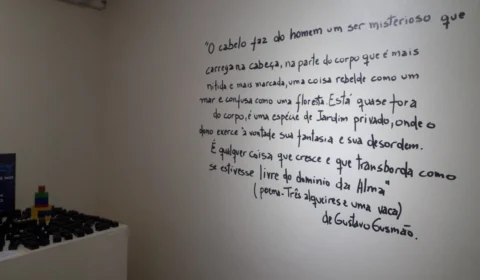 "O cabelo faz do homem um ser misterioso que
carrega na cabeça, na parte do corpo que é mais
nitida e mais marcada, uma coisa rebelde como um
mar e confusa como uma floresta. Está quase fora
do corpo, é uma espécie de Jardim privado, onde o
dono exerce à vontade sua fantasia e sua desordem.
É qualquer coisa que cresce e que transborda como
se estivesse livre do dominio da Alma"
(poema-Três alqueires e uma vaca)
de Gustavo Gusmão.